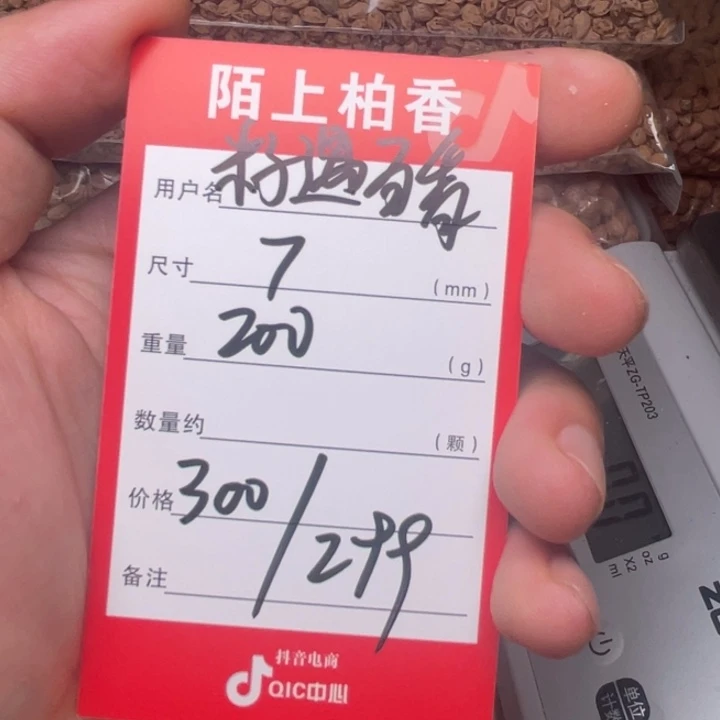 陌上柏香
用户名 籽遇百香
尺寸 7 (mm)
重量 200 (g)
数量约 (颗)
价格 300/299
备注
抖音电商
QIC中心
天平ZG-TP203
g
oz
X2
ml
单位
计数